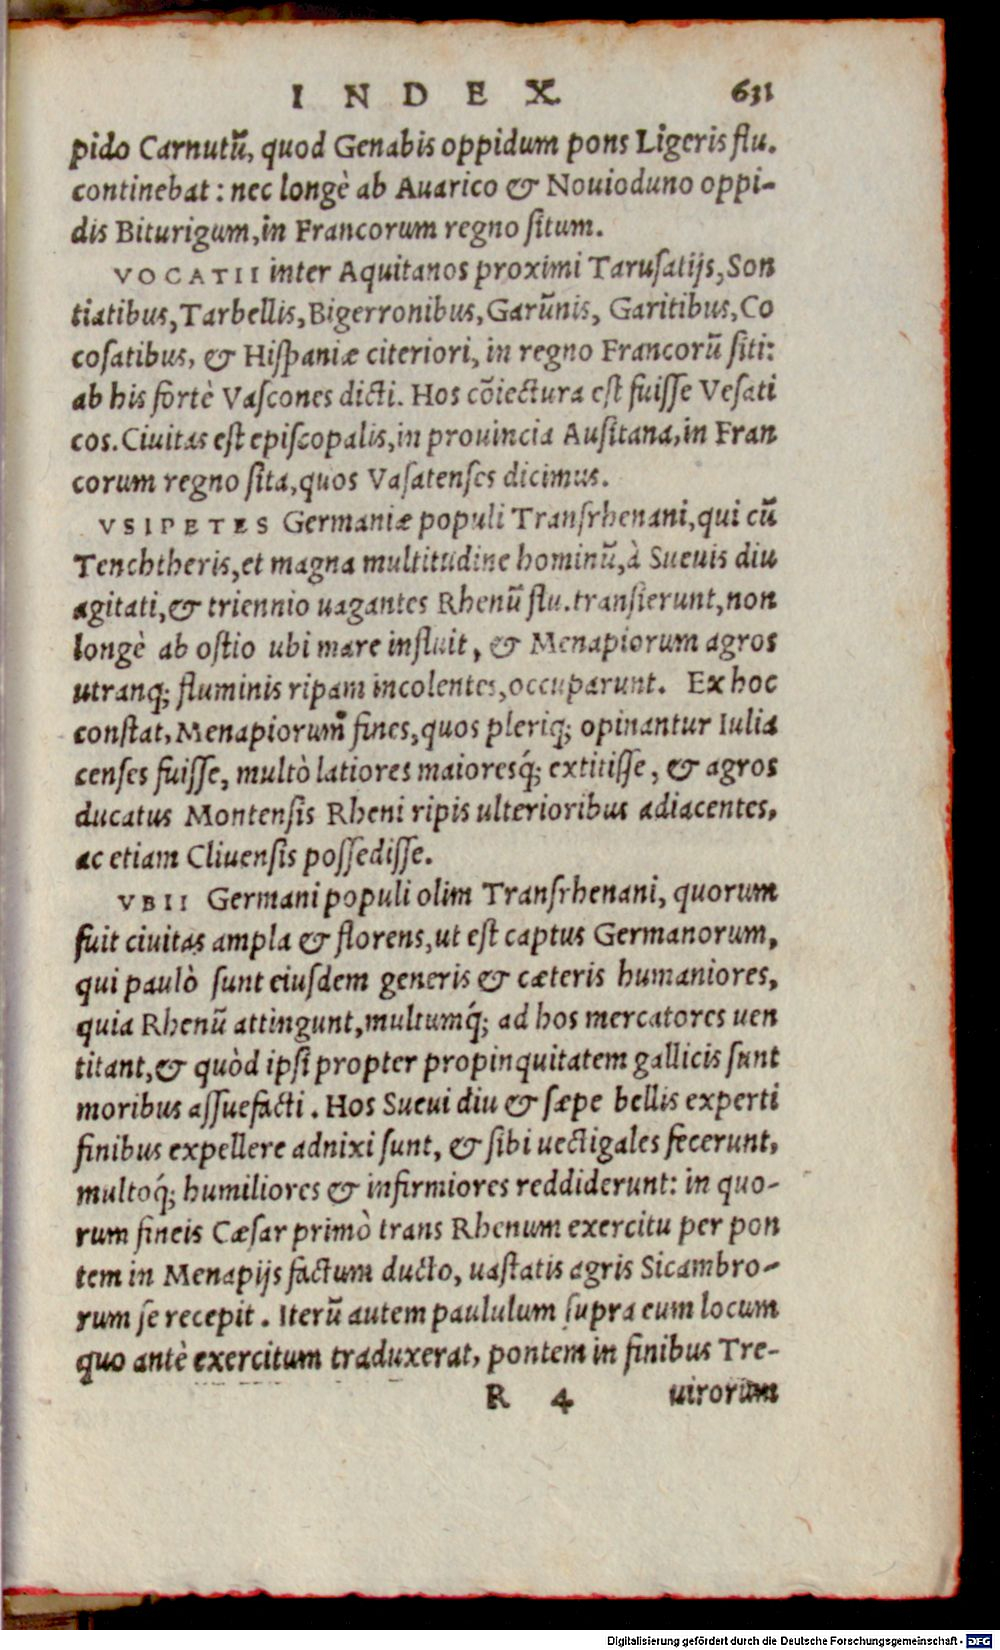 INDEX 631
pido Carnutũ, quod Genabis oppidum pons Ligeris flu.
continebat: nec longè ab Auarico & Nouioduno oppi-
dis Biturigum, in Francorum regno situm.
VOCATII inter Aquitanos proximi Tarusatijs, Son
tiatibus, Tarbellis, Bigerronibus, Garũnis, Garitibus, Co
cosatibus, & Hispaniæ citeriori, in regno Francorũ siti:
ab his fortè Vascones dicti. Hos cõiectura est fuisse Vesati
cos. Ciuitas est episcopalis, in prouincia Ausitana, in Fran
corum regno sita, quos Vasatenses dicimus.
VSIPETES Germaniæ populi Transrhenani, qui cũ
Tenchtheris, et magna multitudine hominũ, à Sueuis diu
agitati, & triennio uagantes Rhenũ flu. transierunt, non
longè ab ostio ubi mare influit, & Menapiorum agros
utranq; fluminis ripam incolentes, occuparunt. Ex hoc
constat, Menapiorum fines, quos pleriq; opinantur Iulia
censes fuisse, multò latiores maioresq́; extitisse, & agros
ducatus Montensis Rheni ripis ulterioribus adiacentes,
ac etiam Cliuensis possedisse.
VBII Germani populi olim Transrhenani, quorum
fuit ciuitas ampla & florens, ut est captus Germanorum,
qui paulò sunt eiusdem generis & cæteris humaniores,
quia Rhenũ attingunt, multumq́; ad hos mercatores uen
titant, & quòd ipsi propter propinquitatem gallicis sunt
moribus assuefacti. Hos Sueui diu & sæpe bellis experti
finibus expellere adnixi sunt, & sibi uectigales fecerunt,
multoq́; humiliores & infirmiores reddiderunt: in quo-
rum fineis Cæsar primò trans Rhenum exercitu per pon
tem in Menapijs factum ducto, uastatis agris Sicambro-
rum se recepit. Iterũ autem paululum supra eum locum
quo antè exercitum traduxerat, pontem in finibus Tre-
R 4 uirorum
Digitalisierung gefördert durch die Deutsche Forschungsgemeinschaft - DFG